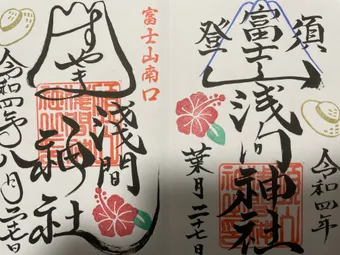 富士山南口
すやま
淺間
神社
令和四年八月
須
富士
登
浅間神社
令和四年
葉月二十七日